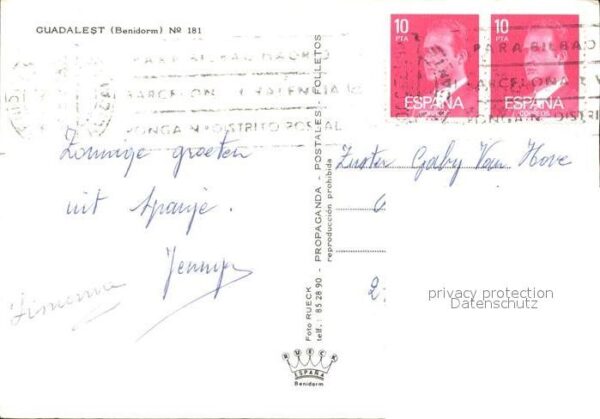 GUADALEST (Benidorm) Nº 181
PARA BILBAO MADRID
BARCELONA Y VALENCIA
PONGA Nº DISTRITO POSTAL
10
PTA
ESPAÑA
CORREOS
10
PTA
ESPAÑA
CORREOS
PARA BILBAO
BARCELONA Y V
PONGA Nº DISTRI
Zonnige groeten
uit Spanje.
Jenny
Zuster Gaby Van Hove
6
2
Foto RUECK - PROPAGANDA - POSTALES - FOLLETOS
telf.: 85 28 90 - reproducción prohibida
RUECK
ESPAÑA
Benidorm
privacy protection
Datenschutz